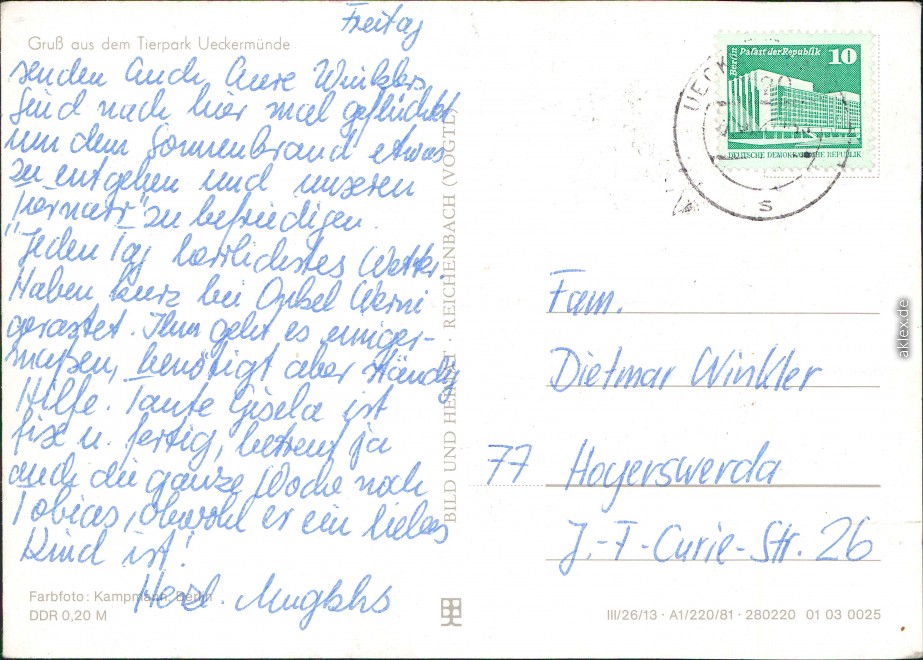 Freitag
Gruß aus dem Tierpark Ueckermünde
senden Euch Eure Winklers.
Sind nach hier mal geflüchtet
um dem Sonnenbrand etwas
zu entgehen und unseren
"Tiernarr" zu befriedigen.
Jeden Tag herrlichstes Wetter.
Haben kurz bei Onkel Werni
gerastet. Ihm geht es einiger-
maßen, benötigt aber ständig
Hilfe. Tante Gisela ist
fix u. fertig, betreut ja
auch die ganze Woche noch
Tobias, obwohl er ein liebes
Kind ist!
Herzl.
Farbfoto: Kampmann, Berlin
DDR 0,20 M
BILD UND HEIMAT · REICHENBACH (VOGTL)
Berlin Palast der Republik 10
DEUTSCHE DEMOKRATISCHE REPUBLIK
UECK
20
s
Fam.
Dietmar Winkler
77 Hoyerswerda
J.-F-Curie-Str. 26
III/26/13 · A1/220/81 · 280220 01 03 0025
aklex.de